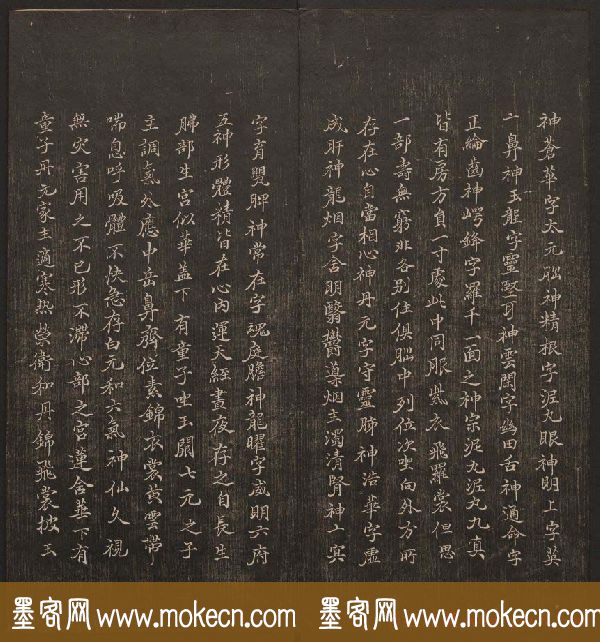 神蒼華字太元腦神精根字泥丸眼神明上字英
二鼻神玉龍字靈堅耳神雲閑字幽田舌神通命字
正綸齒神崿鋒字羅千一面之神宗泥丸泥丸九真
皆有房方負一寸處此中同服紫衣飛羅裳但思
一部壽無窮非各別住俱腦中列位次坐向外方所
存在心自當相心神丹元字守靈肺神治華字虛
成肝神龍烟字含明翳鬱導烟主濁清腎神亠冥
字育嬰脾神常在字魂庭膽神龍曜字威明六府
五神形體精皆在心內運天經晝夜存之自長生
肺部生宮似華蓋下有童子坐玉闕七元之子
主調氣外應中岳鼻齊位素錦衣裳黃雲帶
喘息呼吸體不快急存白元和六氣神仙久視
無灾害用之不已形不滯心部之宮蓮含華下有
童子丹元家主適寒熱榮衛和丹錦飛裳披玉
墨客网 www.mokecn.com 墨客网 www.mokecn.com